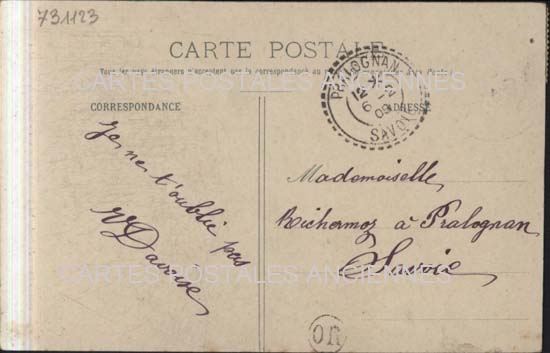 731123
CARTE POSTALE
Tous les pays étrangers n'acceptent pas la correspondance au
CORRESPONDANCE
ADRESSE
PRALOGNAN
SAVOIE
Je ne t'oublie pas
Mademoiselle
Richermoz à Pralognan
Savoie
OR
CARTES POSTALES ANCIENNES